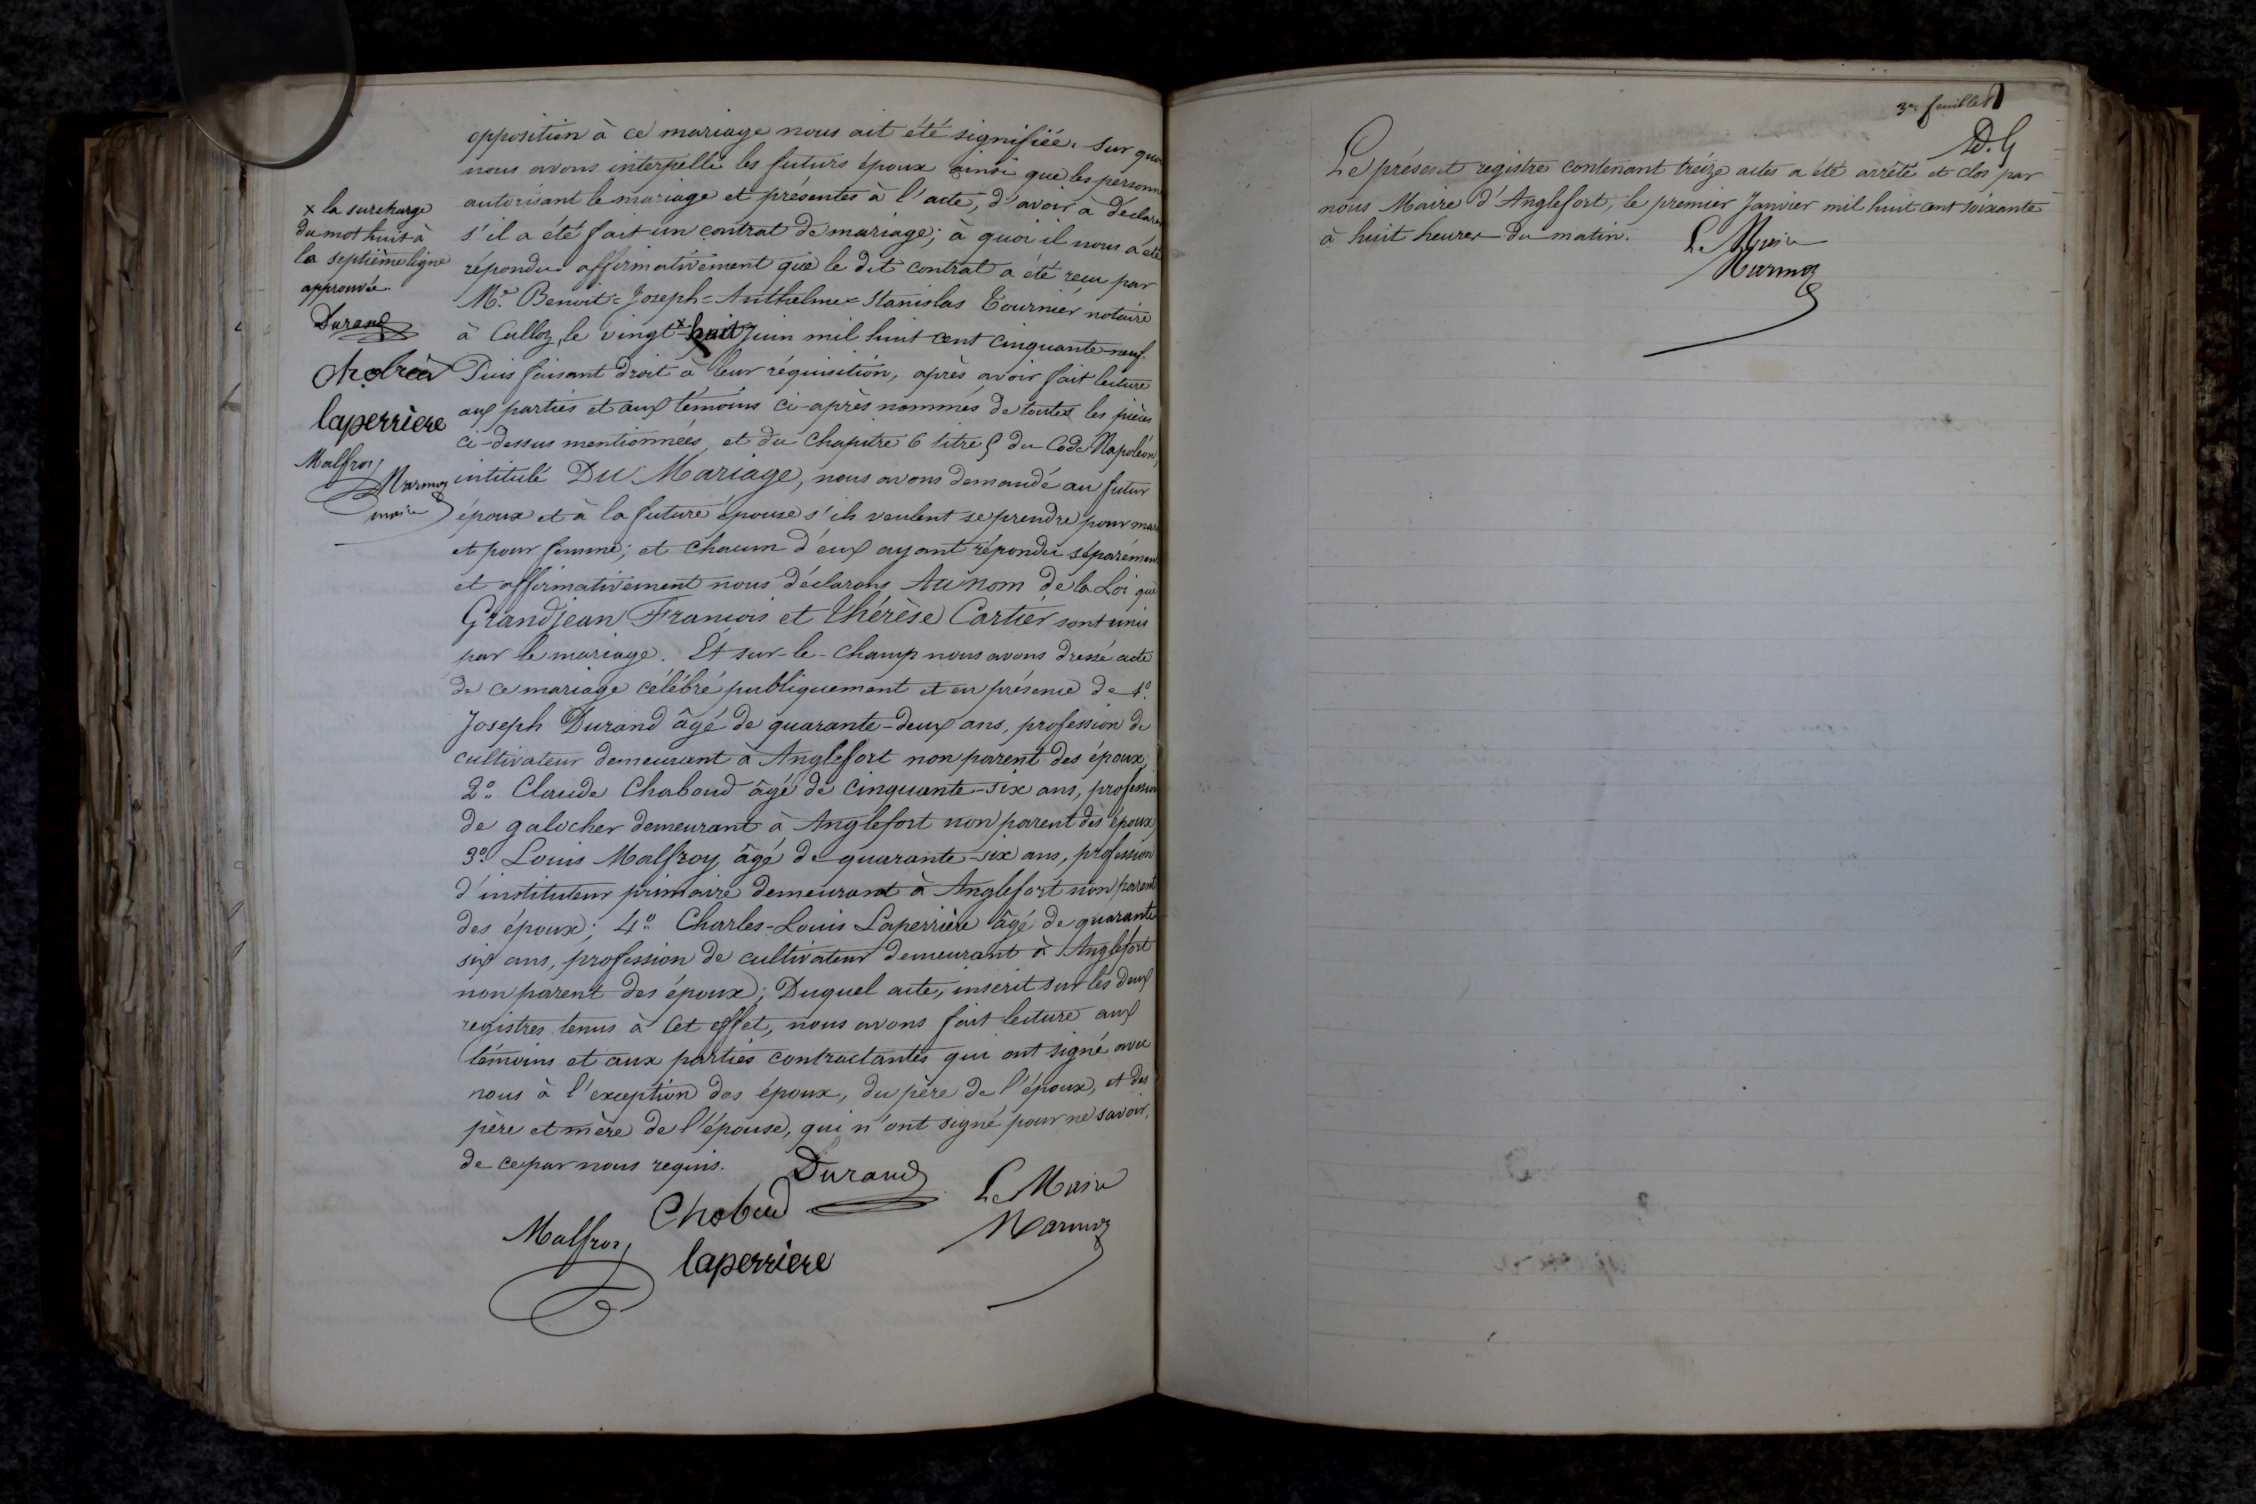 opposition à ce mariage nous ait été signifiée. Sur quoi
nous avons interpellé les futurs époux ainsi que les personn
autorisant le mariage et présentes à l'acte, d'avoir à déclarer
s'il a été fait un contrat de mariage; à quoi il nous a été
répondu affirmativement que le dit contrat a été reçu par
Me. Benoit=Joseph=Anthelme=Stanislas Tournier notaire
à Culloz, le vingt x huit Juin mil huit cent cinquante-neuf.
Puis faisant droit à leur réquisition, après avoir fait lecture
aux parties et aux témoins ci-après nommés de toutes les pièces
ci-dessus mentionnées, et du Chapitre 6 titre 5 du Code Napoléon,
intitulé Du Mariage, nous avons demandé au futur
époux et à la future épouse s'ils veulent se prendre pour mari
et pour femme; et chacun d'eux ayant répondu séparément
et affirmativement nous déclarons Au nom de la Loi que
Grandjean François et Thérèse Cartier sont unis
par le mariage. Et sur-le-champ nous avons dressé acte
de ce mariage célébré publiquement et en présence de 1o.
Joseph Durand âgé de quarante-deux ans, profession de
cultivateur demeurant à Anglefort non parent des époux;
2o. Claude Chaboud âgé de cinquante-six ans, profession
de galocher demeurant à Anglefort non parent des époux;
3o. Louis Malfroy âgé de quarante-six ans, profession
d'instituteur primaire demeurant à Anglefort non parent
des époux; 4o. Charles-Louis Laperrière âgé de quarante
six ans, profession de cultivateur demeurant à Anglefort
non parent des époux; Duquel acte, inscrit sur les deux
registres tenus à cet effet, nous avons fait lecture aux
témoins et aux parties contractantes qui ont signé avec
nous à l'exception des époux, du père de l'époux, et des
père et mère de l'épouse, qui n'ont signé pour ne savoir,
de ce par nous requis.
Durand
Le Maire
Chabud
Marmoz
Malfroy
laperriere
x la surcharge
du mot huit à
la septième ligne
approuvée.
Durand
laperrière
Malfroy
Marmoz
maire
3e. feuillet
Le présent registre contenant treize actes a été arrêté et clos par
nous Maire d'Anglefort, le premier Janvier mil huit cent soixante
à huit heures du matin.
Le Maire
Marmoz